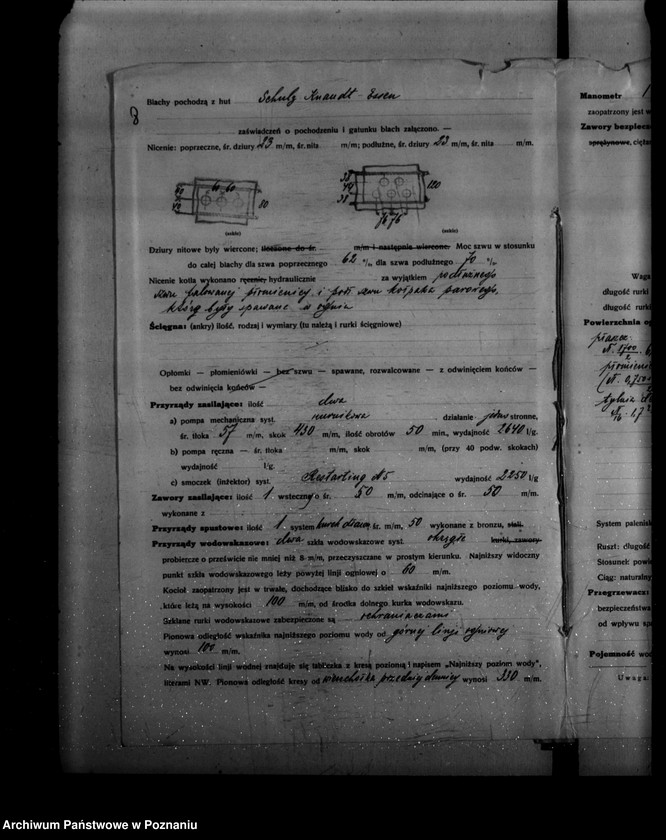 8
Blachy pochodzą z hut Schulz Knaudt - Essen
zaświadczeń o pochodzeniu i gatunku blach załączono. —
Nicenie: poprzeczne, śr. dziury 23 m/m, śr. nita m/m; podłużne, śr. dziury 23 m/m, śr. nita m/m.
60 60
80
38
44
38
120
76 76
(szkic) (szkic)
Dziury nitowe były wiercone; tłoczone do śr. m/m i następnie wiercone. Moc szwu w stosunku
do całej blachy dla szwa poprzecznego 62 %, dla szwa podłużnego 70 %.
Nicenie kotła wykonano ręcznie, hydraulicznie za wyjątkiem podłużnego
szwu falowanej płomienicy i podł. szwu kołpaka parowego,
które były spawane w ogniu
Ścięgna: (ankry) ilość, rodzaj i wymiary (tu należą i rurki ścięgniowe)
Opłomki — płomieniówki — bez szwu — spawane, rozwalcowane — z odwinięciem końców —
bez odwinięcia końców —
Przyrządy zasilające: ilość dwa
a) pompa mechaniczna syst. nurnikowa działanie jedno stronne,
śr. tłoka 57 m/m, skok 430 m/m, ilość obrotów 50 min., wydajność 2640 l/g.
b) pompa ręczna — śr. tłoka m/m, skok m/m, (przy 40 podw. skokach)
wydajność l/g.
c) smoczek (inżektor) syst. Restarting N5 wydajność 2250 l/g
Zawory zasilające: ilość 1 wsteczny o śr. 50 m/m, odcinające o śr. 50 m/m.
wykonane z
Przyrządy spustowe: ilość 1 system kurek śr. m/m, 50 wykonane z bronzu, stali.
Przyrządy wodowskazowe: dwa szkła wodowskazowe syst. okrągłe kurki, zawory
probiercze o prześwicie nie mniej niż 8 m/m, przeczyszczane w prostym kierunku. Najniższy widoczny
punkt szkła wodowskazowego leży powyżej linji ogniowej o 60 m/m.
Kocioł zaopatrzony jest w trwałe, dochodzące blisko do szkieł wskaźniki najniższego poziomu wody,
które leżą na wysokości 100 m/m, od środka dolnego kurka wodowskazu.
Szklane rurki wodowskazowe zabezpieczone są ochraniaczami
Pionowa odległość wskaźnika najniższego poziomu wody od górnej linji ogniowej
wynosi 100 m/m.
Na wysokości linji wodnej znajduje się tabliczka z kresą poziomą i napisem „Najniższy poziom wody",
literami NW. Pionowa odległość kresy od wierzchołka przedniej dennicy wynosi 330 m/m.
Manometr 1
zaopatrzony jest w
Zawory bezpiecze
sprężynowe, cięża
Waga
długość rurki
długość rurki
Powierzchnia o
płaszcz
Tylna
System palenisk
Ruszt: długość
Stosunek powie
Ciąg: naturalny
Przegrzewacz:
bezpieczeństwa
od wpływu spa
Pojemność wod
Uwaga:
Archiwum Państwowe w Poznaniu